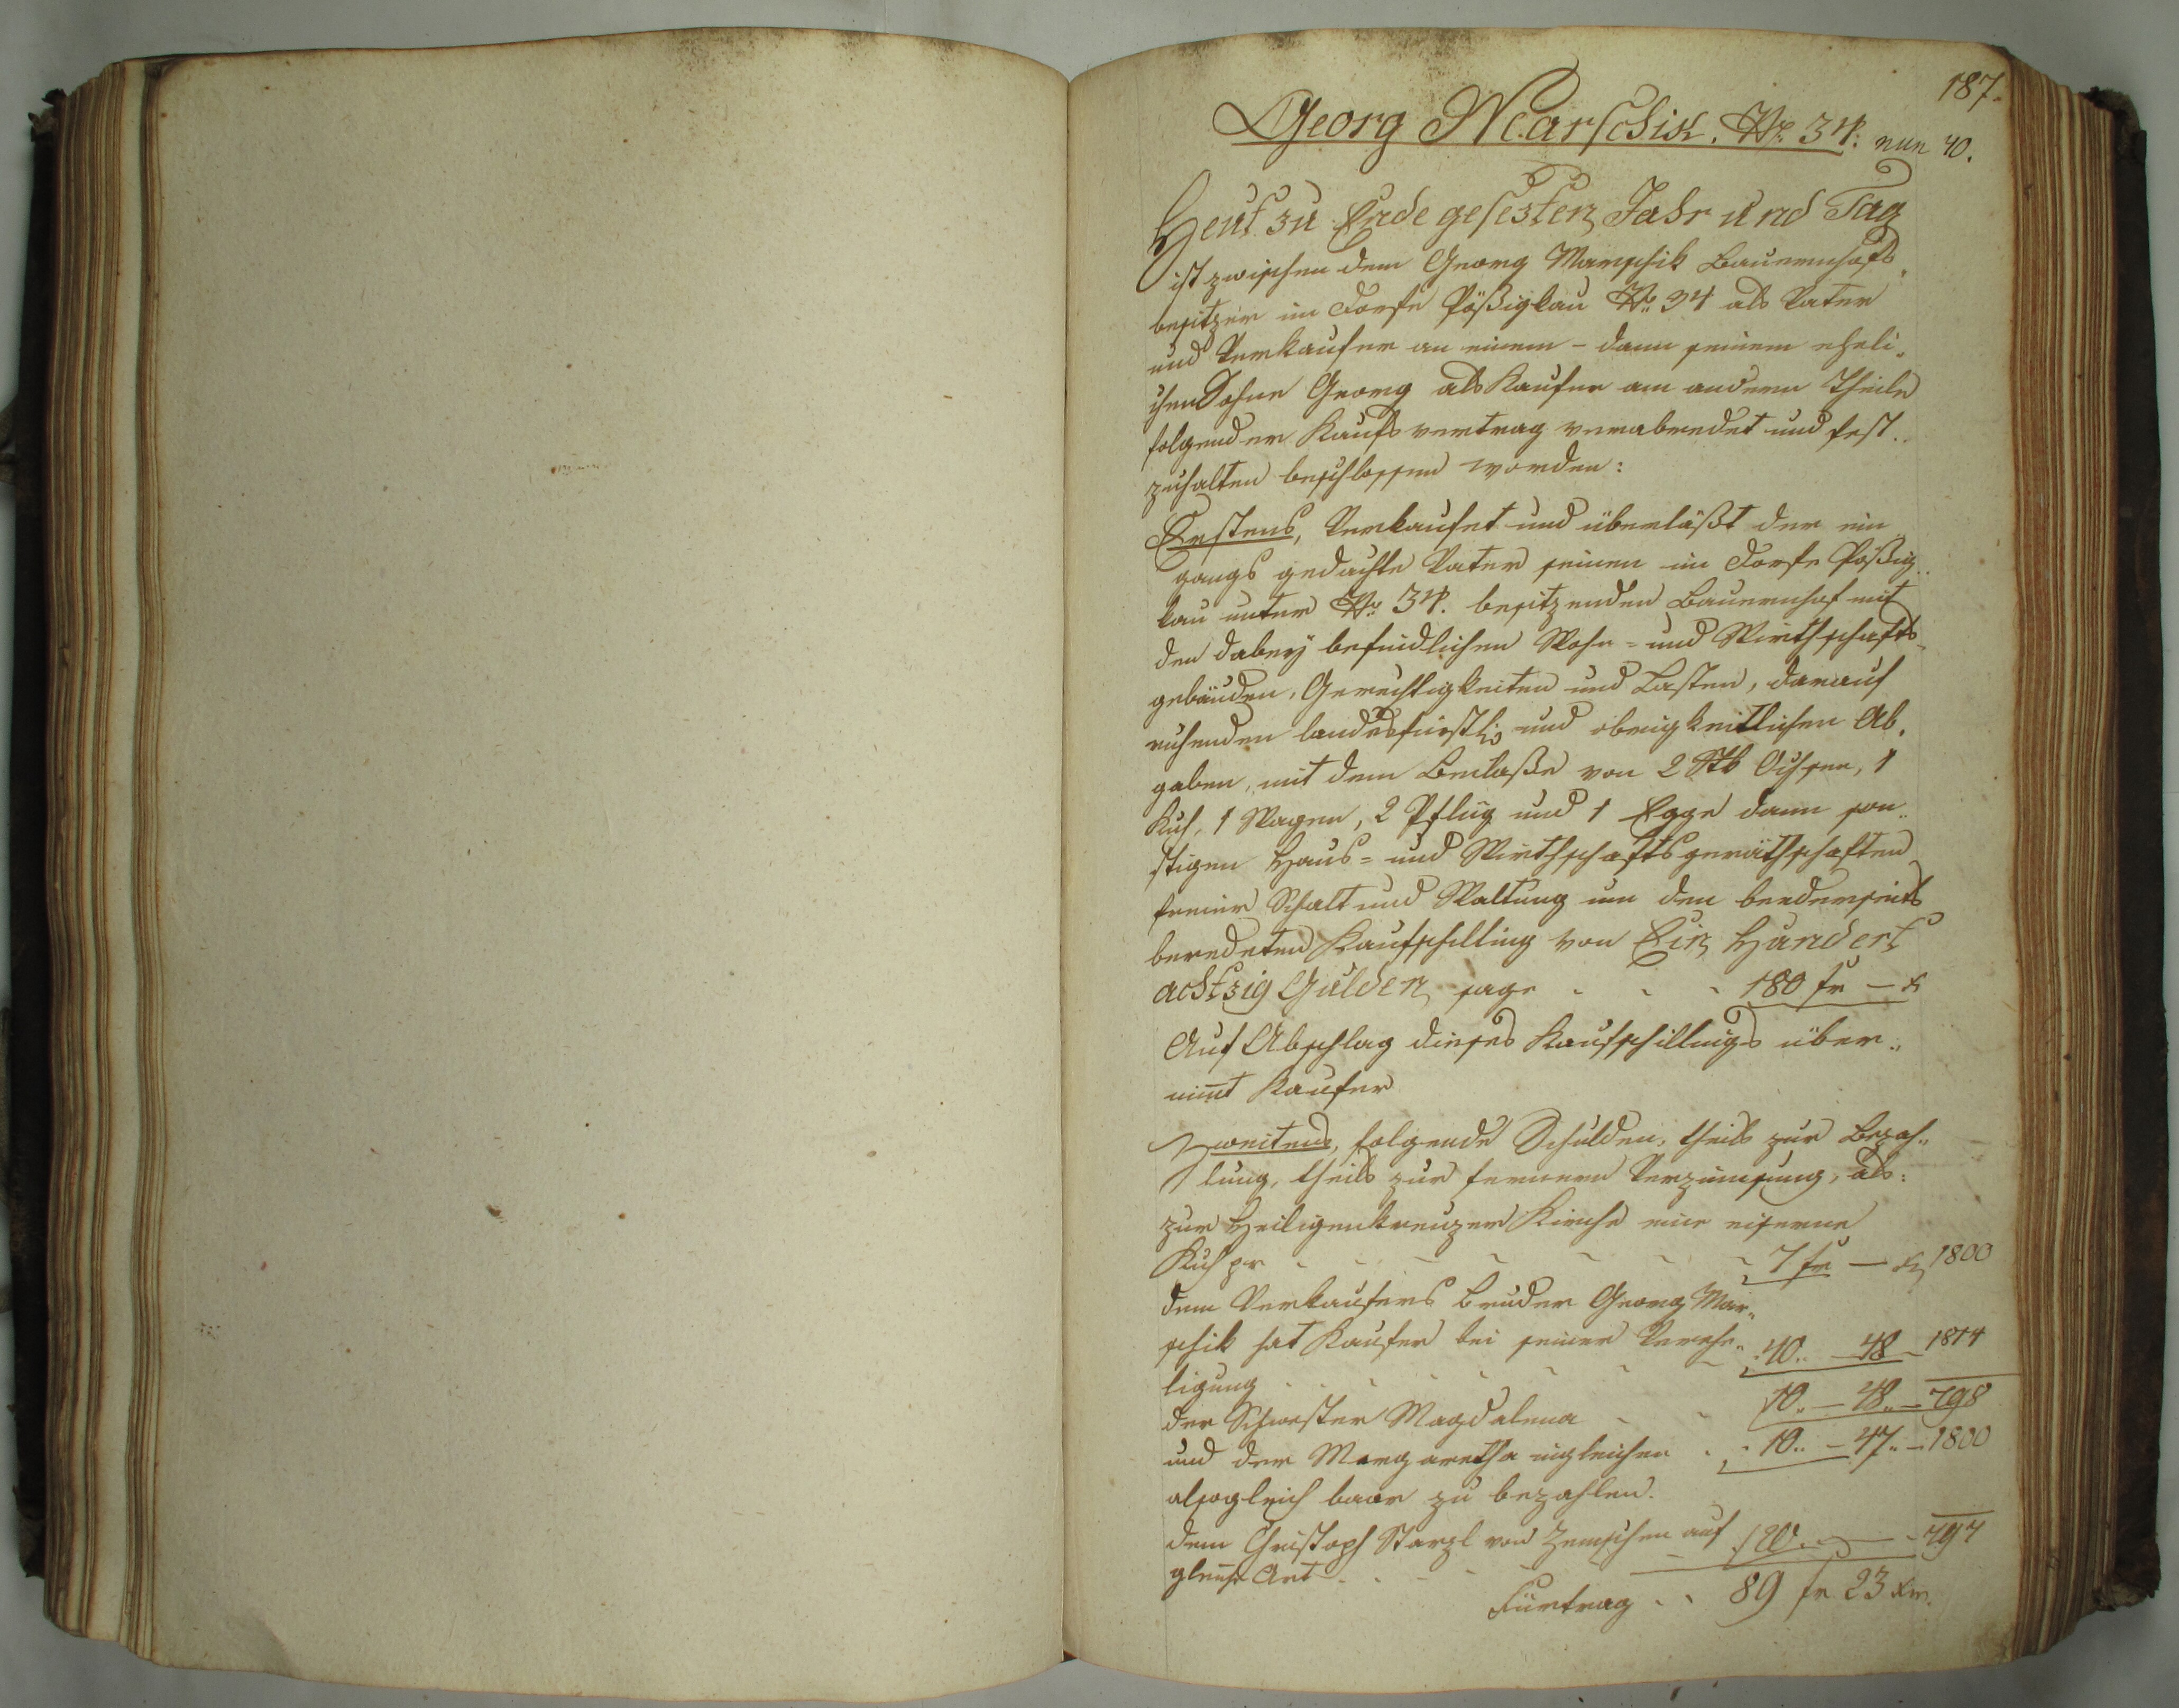 187.
Georg Marschik. Nr. 34. nun 40.
Heut zu Ende gesezten Jahr und Tag
ist zwischen dem Georg Marschik Bauernhofs„
besitzer im Dorfe Pößigkau Nr. 34 als Vater
und Verkaufer an einem – dann seinem eheli„
chen Sohne Georg als Kaufer am andern Theile
folgender Kaufsvertrag verabredet und fest„
zuhalten beschlossen worden:
Erstens, Verkaufet und überläßt der ein
gangs gedachte Vater seinen im Dorfe Poßig„
kau unter Nr. 34. besitzenden Bauernhof mit
den dabey befindlichen Wohn- und Wirthschafts„
gebäuden, Gerechtigkeiten und Lasten, darauf
ruhenden landesfürstl. und obrigkeitlichen Ab„
gaben, mit dem Beilaße von 2 Stk Ochsen, 1
Kuh, 1 Wagen, 2 Pflüg und 1 Egge dann son„
stigen Haus- und Wirthschaftsgeräthschaften
freier Schalt und Waltung um den beederseits
beredeten Kaufschilling von Ein Hundert
achtzig Gulden sage - - - 180 fr – x
Auf Abschlag dieses Kaufschillings über„
nimt Kaufer
Zweitens, folgende Schulden, theils zur Bezah„
lung, theils zur fernern Verzinsung, als:
zur Heiligenkreuzer Kirche eine eiserne
Kuh pr - - - - - - 7 fr — x 1800
dem Verkaufers Bruder Georg Mar„
schik hat Kaufer bei seiner Verehe„
ligung - - - - - - 40.. – 48 – 1814
der Schwester Magdalena - - 10.. – 48.. – 798
und der Margaretha ingleichen - - 10.. – 47.. – 1800
alsogleich baar zu bezahlen.
dem Christoph Starzl von Zemschen auf
gleiche Art - - - - 20.. — 797
Fürtrag - - 89 fr 23 xr.